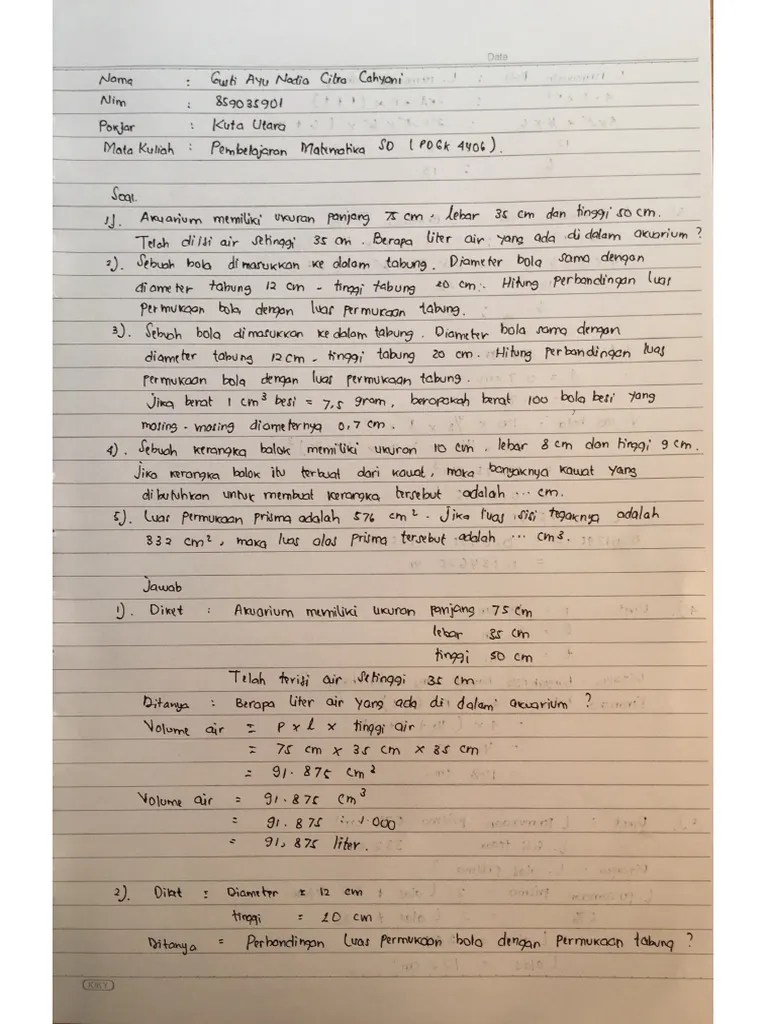 Date
Nama : Gusti Ayu Nadia Citra Cahyani
Nim : 859035901
Pokjar : Kuta Utara
Mata Kuliah : Pembelajaran Matematika SD (PDGK 4406).
Soal.
1). Akuarium memiliki ukuran panjang 75 cm, lebar 35 cm dan tinggi 50 cm.
Telah diisi air setinggi 35 cm. Berapa liter air yang ada di dalam akuarium ?
2). Sebuah bola dimasukkan ke dalam tabung. Diameter bola sama dengan
diameter tabung 12 cm - tinggi tabung 20 cm. Hitung perbandingan luas
permukaan bola dengan luas permukaan tabung.
3). Sebuah bola dimasukkan ke dalam tabung. Diameter bola sama dengan
diameter tabung 12 cm - tinggi tabung 20 cm. Hitung perbandingan luas
permukaan bola dengan luas permukaan tabung.
Jika berat 1 cm³ besi = 7,5 gram, berapakah berat 100 bola besi yang
masing-masing diameternya 0,7 cm.
4). Sebuah kerangka balok memiliki ukuran 10 cm, lebar 8 cm dan tinggi 9 cm.
Jika kerangka balok itu terbuat dari kawat, maka banyaknya kawat yang
dibutuhkan untuk membuat kerangka tersebut adalah ... cm.
5). Luas permukaan prisma adalah 576 cm² - jika luas sisi tegaknya adalah
332 cm², maka luas alas prisma tersebut adalah ... cm³.
Jawab
1). Diket : Akuarium memiliki ukuran panjang 75 cm
lebar 35 cm
tinggi 50 cm
Telah terisi air setinggi 35 cm
Ditanya : Berapa liter air yang ada di dalam akuarium ?
Volume air = P x l x tinggi air
= 75 cm x 35 cm x 35 cm
= 91.875 cm²
Volume air = 91.875 cm³
= 91.875 : 1.000
= 91,875 liter.
2). Diket = Diameter = 12 cm
tinggi = 20 cm
Ditanya = Perbandingan luas permukaan bola dengan permukaan tabung ?
KIKY